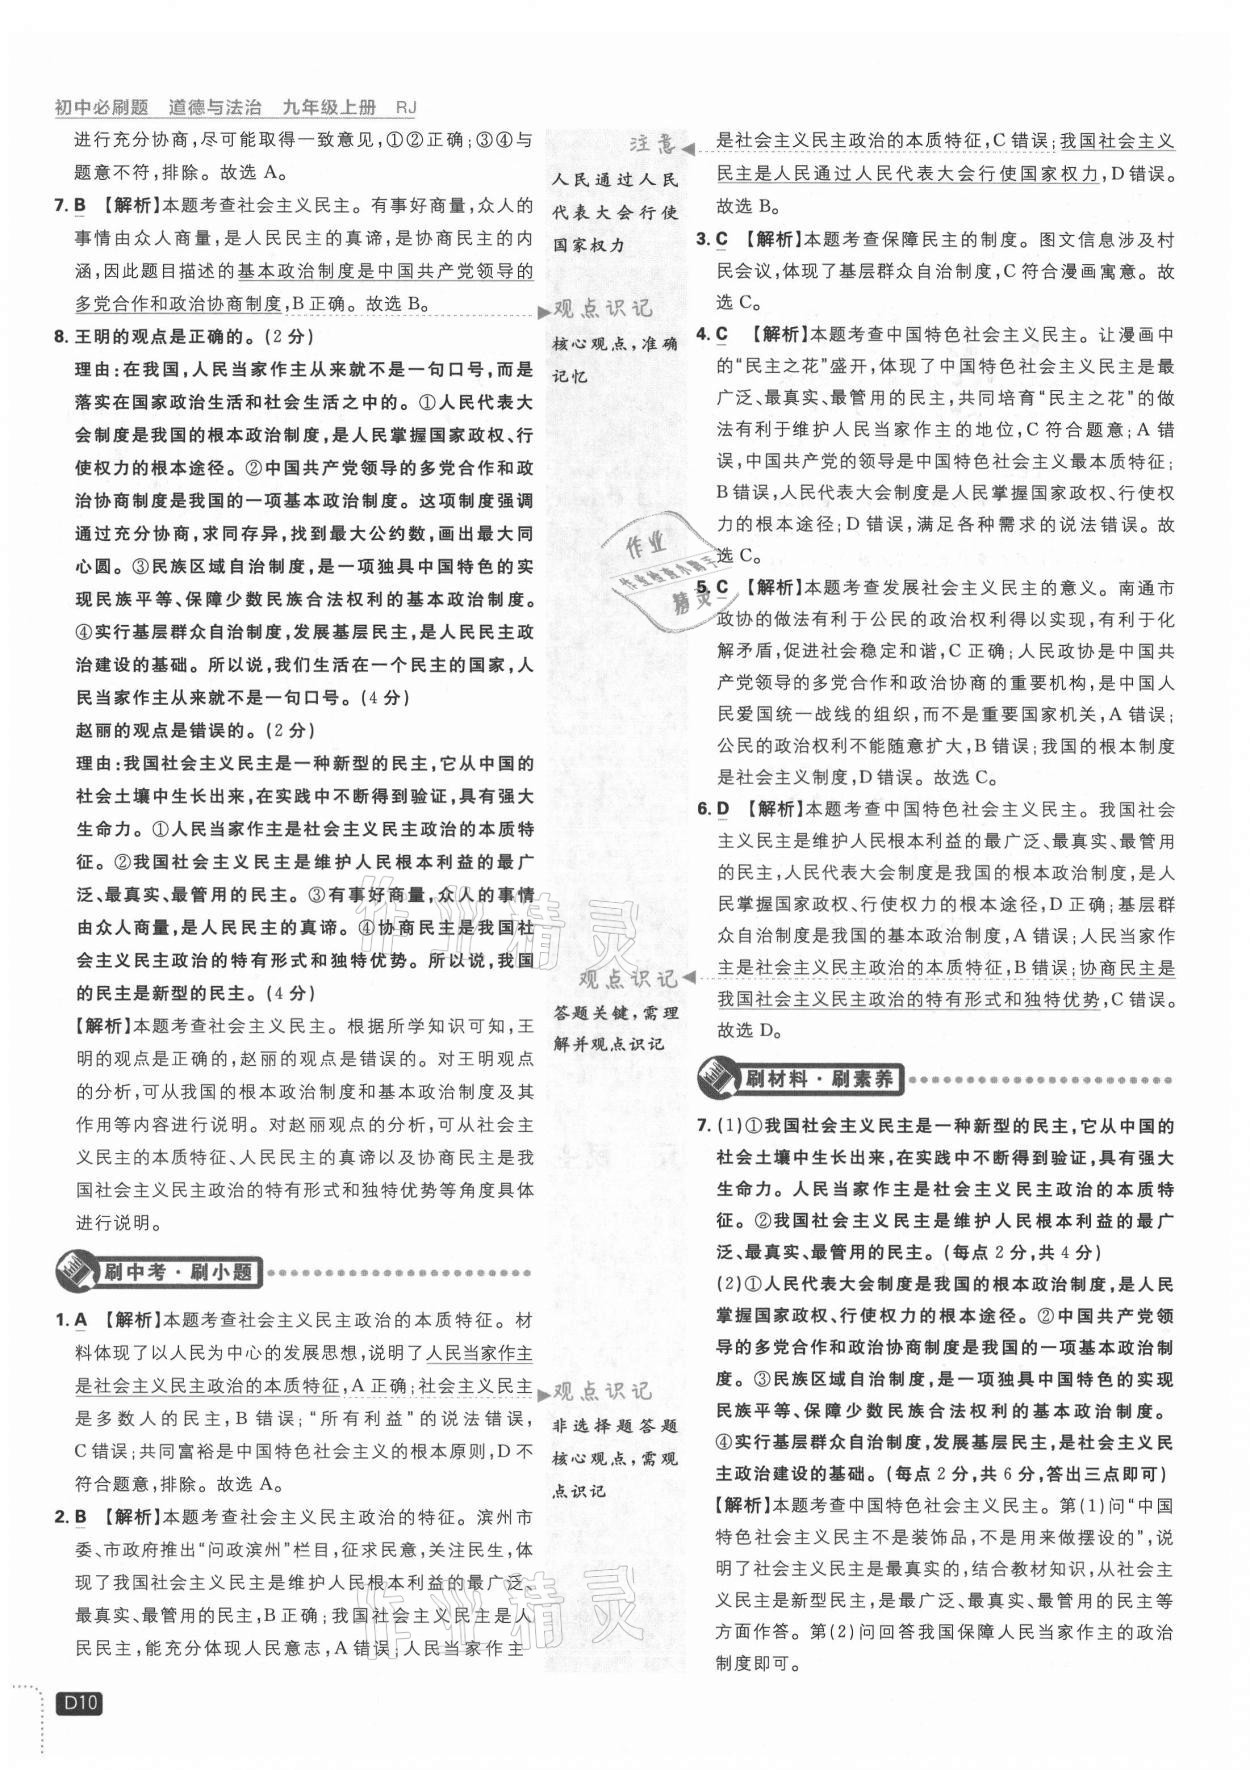 初中必刷题 道德与法治 九年级上册 RJ
进行充分协商,尽可能取得一致意见,①②正确;③④与
题意不符,排除。故选 A。
7. B 【解析】本题考查社会主义民主。有事好商量,众人的
事情由众人商量,是人民民主的真谛,是协商民主的内
涵,因此题目描述的基本政治制度是中国共产党领导的
多党合作和政治协商制度,B 正确。故选 B。
8. 王明的观点是正确的。(2 分)
理由:在我国,人民当家作主从来就不是一句口号,而是
落实在国家政治生活和社会生活之中的。①人民代表大
会制度是我国的根本政治制度,是人民掌握国家政权、行
使权力的根本途径。②中国共产党领导的多党合作和政
治协商制度是我国的一项基本政治制度。这项制度强调
通过充分协商,求同存异,找到最大公约数,画出最大同
心圆。③民族区域自治制度,是一项独具中国特色的实
现民族平等、保障少数民族合法权利的基本政治制度。
④实行基层群众自治制度,发展基层民主,是人民民主政
治建设的基础。所以说,我们生活在一个民主的国家,人
民当家作主从来就不是一句口号。(4 分)
赵丽的观点是错误的。(2 分)
理由:我国社会主义民主是一种新型的民主,它从中国的
社会土壤中生长出来,在实践中不断得到验证,具有强大
生命力。①人民当家作主是社会主义民主政治的本质特
征。②我国社会主义民主是维护人民根本利益的最广
泛、最真实、最管用的民主。③有事好商量,众人的事情
由众人商量,是人民民主的真谛。④协商民主是我国社
会主义民主政治的特有形式和独特优势。所以说,我国
的民主是新型的民主。(4 分)
【解析】本题考查社会主义民主。根据所学知识可知,王
明的观点是正确的,赵丽的观点是错误的。对王明观点
的分析,可从我国的根本政治制度和基本政治制度及其
作用等内容进行说明。对赵丽观点的分析,可从社会主
义民主的本质特征、人民民主的真谛以及协商民主是我
国社会主义民主政治的特有形式和独特优势等角度具体
进行说明。
刷中考·刷小题
1. A 【解析】本题考查社会主义民主政治的本质特征。材
料体现了以人民为中心的发展思想,说明了人民当家作主
是社会主义民主政治的本质特征,A 正确;社会主义民主
是多数人的民主,B 错误;“所有利益”的说法错误,
C 错误;共同富裕是中国特色社会主义的根本原则,D 不
符合题意,排除。故选 A。
2. B 【解析】本题考查社会主义民主政治的特征。滨州市
委、市政府推出“问政滨州”栏目,征求民意,关注民生,体
现了我国社会主义民主是维护人民根本利益的最广泛、
最真实、最管用的民主,B 正确;我国社会主义民主是人
民民主,能充分体现人民意志,A 错误;人民当家作主
D10
注意
人民通过人民
代表大会行使
国家权力
观点识记
核心观点,准确
记忆
作业
作业检查小助手
精灵
作业精灵
观点识记
答题关键,需理
解并观点识记
观点识记
非选择题答题
核心观点,需观
点识记
作业精灵
是社会主义民主政治的本质特征,C 错误;我国社会主义
民主是人民通过人民代表大会行使国家权力,D 错误。
故选 B。
3. C 【解析】本题考查保障民主的制度。图文信息涉及村
民会议,体现了基层群众自治制度,C 符合漫画寓意。故
选 C。
4. C 【解析】本题考查中国特色社会主义民主。让漫画中
的“民主之花”盛开,体现了中国特色社会主义民主是最
广泛、最真实、最管用的民主,共同培育“民主之花”的做
法有利于维护人民当家作主的地位,C 符合题意;A 错
误,中国共产党的领导是中国特色社会主义最本质特征;
B 错误,人民代表大会制度是人民掌握国家政权、行使权
力的根本途径;D 错误,满足各种需求的说法错误。故
选 C。
5. C 【解析】本题考查发展社会主义民主的意义。南通市
政协的做法有利于公民的政治权利得以实现,有利于化
解矛盾,促进社会稳定和谐,C 正确;人民政协是中国共
产党领导的多党合作和政治协商的重要机构,是中国人
民爱国统一战线的组织,而不是重要国家机关,A 错误;
公民的政治权利不能随意扩大,B 错误;我国的根本制度
是社会主义制度,D 错误。故选 C。
6. D 【解析】本题考查中国特色社会主义民主。我国社会
主义民主是维护人民根本利益的最广泛、最真实、最管用
的民主,人民代表大会制度是我国的根本政治制度,是人
民掌握国家政权、行使权力的根本途径,D 正确;基层群
众自治制度是我国的基本政治制度,A 错误;人民当家作
主是社会主义民主政治的本质特征,B 错误;协商民主是
我国社会主义民主政治的特有形式和独特优势,C 错误。
故选 D。
刷材料·刷素养
7. (1)①我国社会主义民主是一种新型的民主,它从中国的
社会土壤中生长出来,在实践中不断得到验证,具有强大
生命力。人民当家作主是社会主义民主政治的本质特
征。②我国社会主义民主是维护人民根本利益的最广
泛、最真实、最管用的民主。(每点 2 分,共 4 分)
(2)①人民代表大会制度是我国的根本政治制度,是人民
掌握国家政权、行使权力的根本途径。②中国共产党领
导的多党合作和政治协商制度是我国的一项基本政治制
度。③民族区域自治制度,是一项独具中国特色的实现
民族平等、保障少数民族合法权利的基本政治制度。
④实行基层群众自治制度,发展基层民主,是社会主义民
主政治建设的基础。(每点 2 分,共 6 分,答出三点即可)
【解析】本题考查中国特色社会主义民主。第(1)问“中国
特色社会主义民主不是装饰品,不是用来做摆设的”,说
明了社会主义民主是最真实的,结合教材知识,从社会主
义民主是新型民主,是最广泛、最真实、最管用的民主等
方面作答。第(2)问回答我国保障人民当家作主的政治
制度即可。